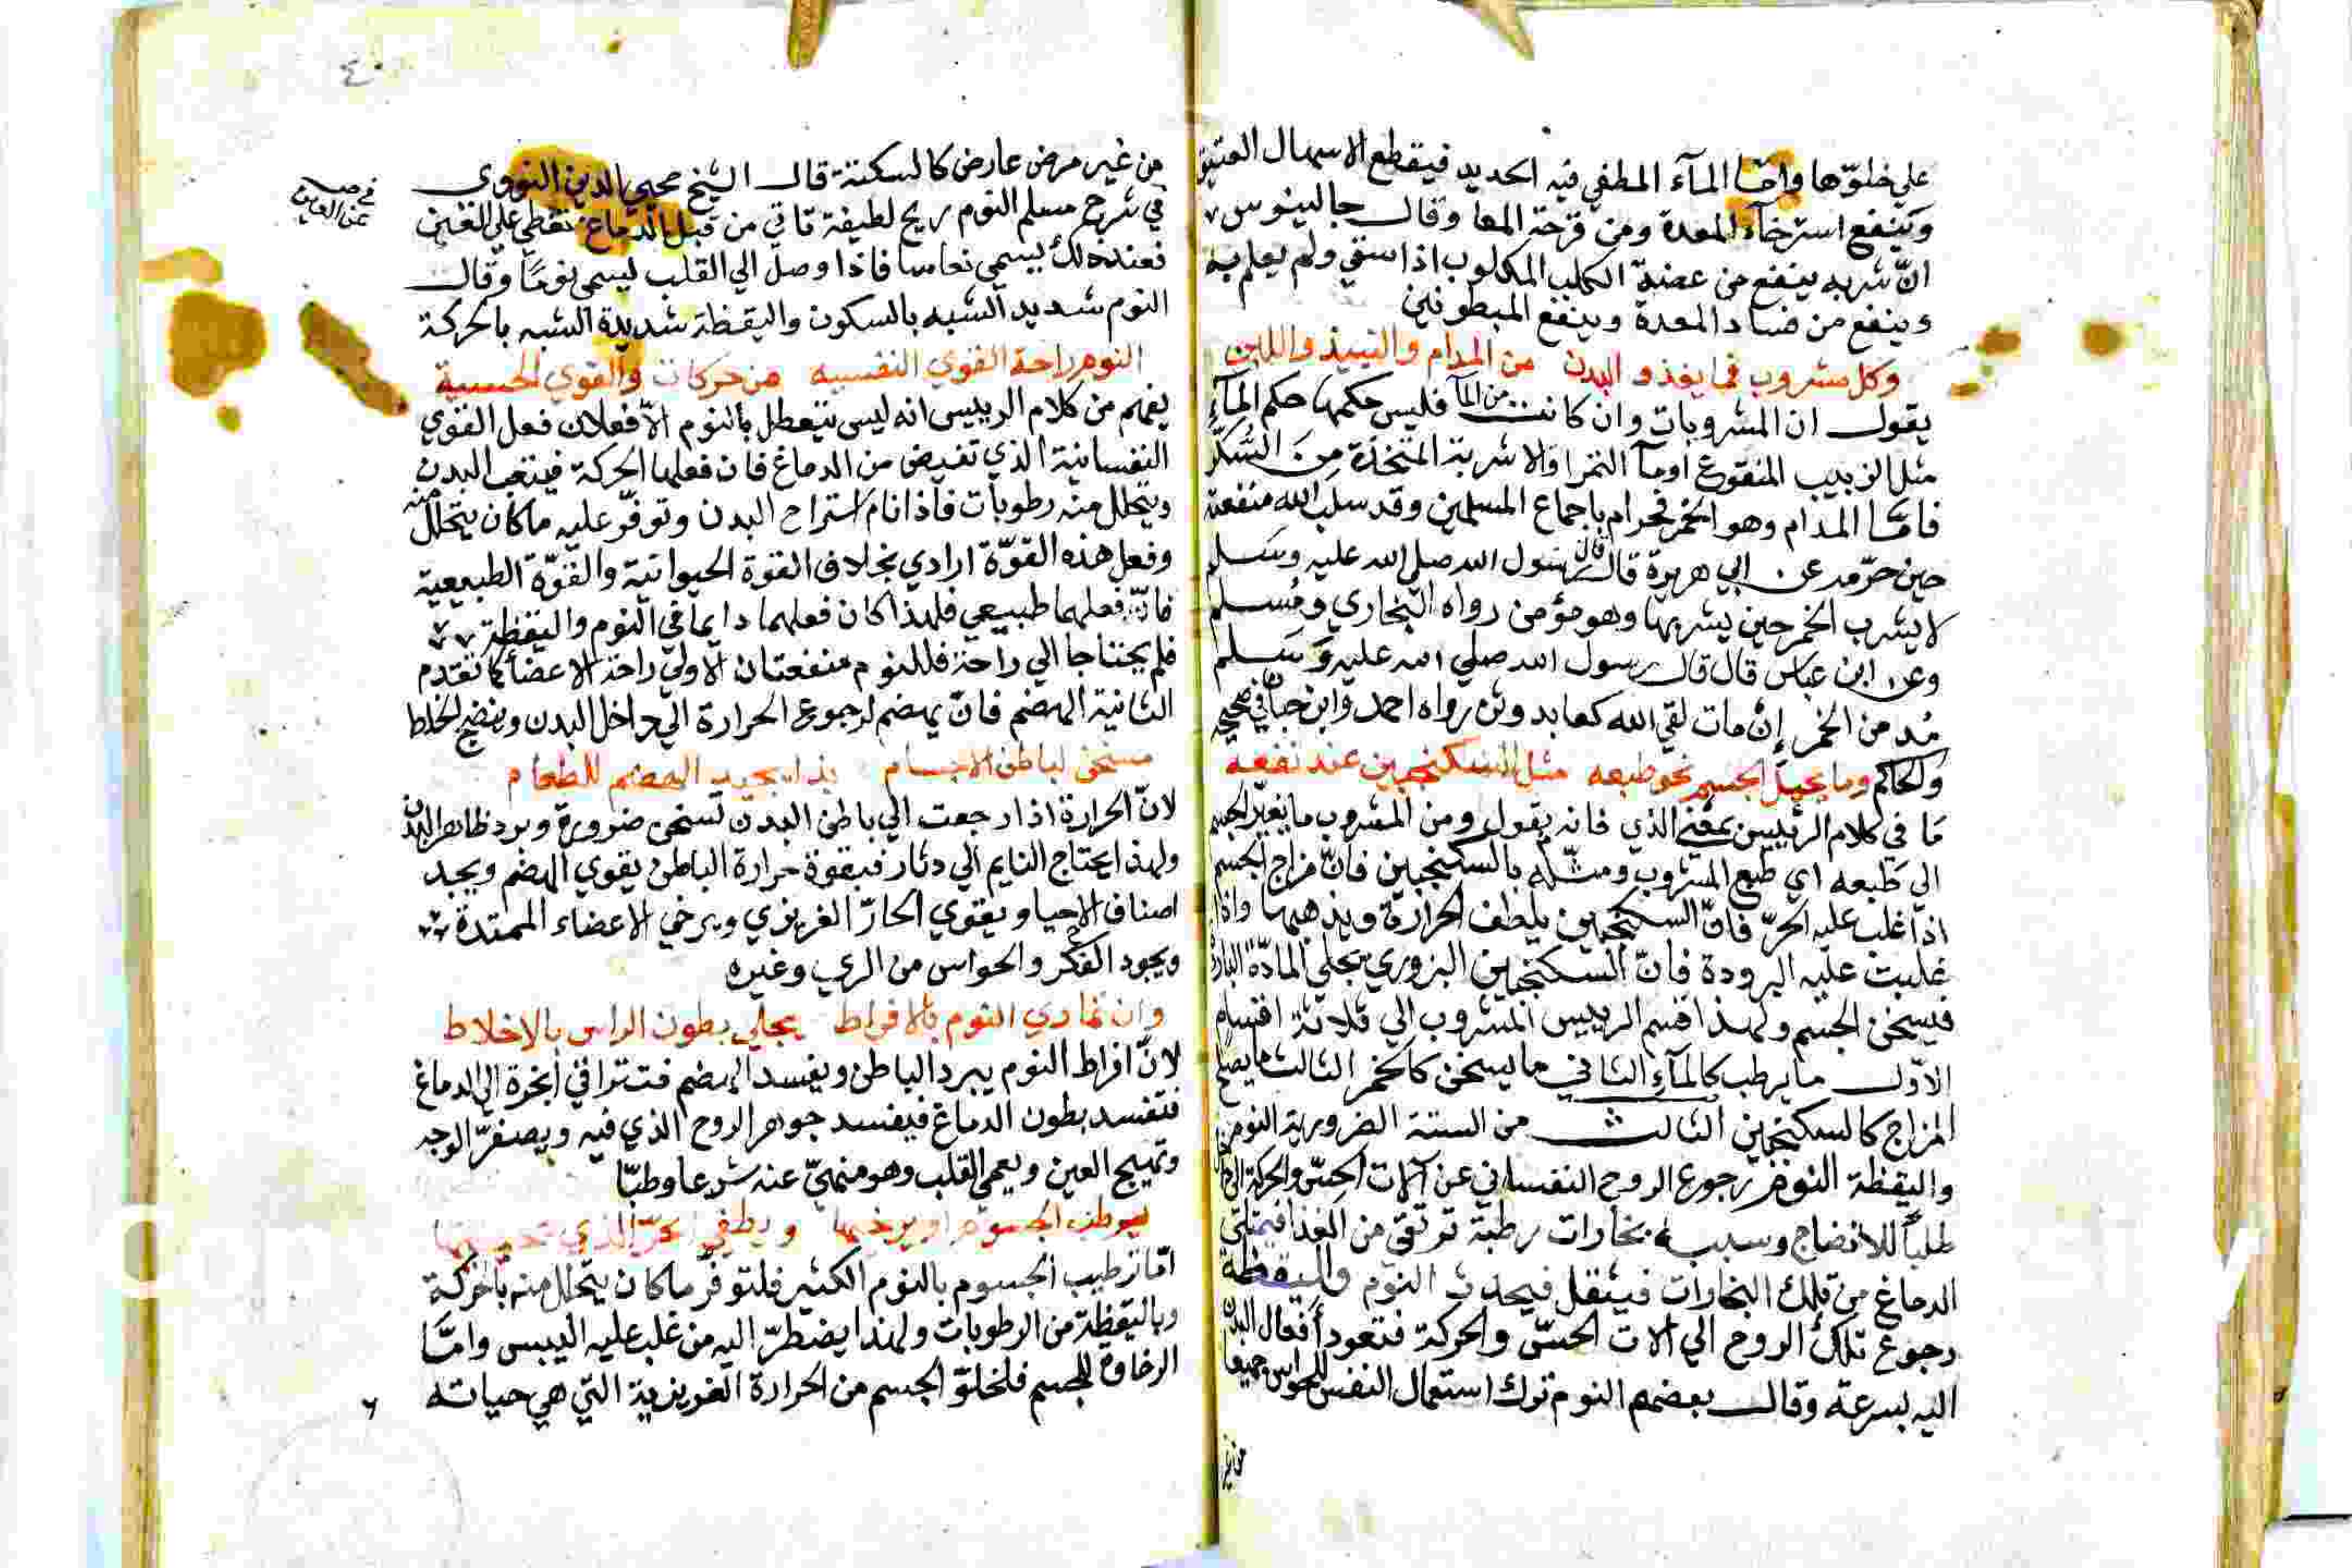 علي خلوّها وامّا المآء المطفي فيه الحديد فيقطع الاسهال العتيق
وينفع استرخآء المعدة ومن قرحة المعا وقال جالينوس
انّ شربه ينفع من عضة الكلب المكلوب اذا سقي ولم يعلم به
وينفع من فساد المعدة وينفع المبطونين
وكل مشروب فما يغذو البدن من المدام والنبيذ واللبن
يقول ان المشروبات وان كانت من المآ فليس حكمها حكم المآء
مثل الزبيب المنقوع اومآ التمر والاشربة المتخذة مِنَ السُّكّر
فامّا المدام وهو الخمر فحرام باجماع المسلمين وقد سلب الله منفعته
حين حرّمه عن ابي هريرة قال قال رسول الله صلي الله عليه وسلم
لا يشرب الخمر حين يشربها وهو مؤمن رواه البخاري ومُسلم
وعن ابن عباس قال قال رسول الله صلي الله عليه وسلم
مُدمن الخمر إن مات لقي الله كعابد وثن رواه احمد وابن حبان في صحيحه
والحاكم وما يحيل الجسم نحو طبعه مثل السكنجبين عند نفعه
مَا في كلام الرئيس بمعني الذي فانه يقول ومن المشروب ما يغيّر الجسم
الي طبعه اي طبع المشروب ومثّله بالسكنجبين فانّ مزاج الجسم
اذا غلب عليه الحرّ فانّ السكنجبين يلطف الحرارة ويذهبها واذا
غلبت عليه البرودة فانّ السكنجبين البزوري يجلي المادّة الباردة
فيسخن الجسم ولهذا قسم الرييس المشروب الي ثلاثة اقسام
الاوّل ما يرطب كالمآء الثاني ما يسخن كالخمر الثالث ما يصلح
المزاج كالسكنجبين الثالث من الستة الضرورية النوم
واليقظة النوم رجوع الروح النفساني عن آلات الحسّ والحركة
طلباً للانضاج وسببه بخارات رطبة ترتقي من الغذا فيمتلئ
الدماغ من تلك البخارات فيثقل فيحدث النوم واليقظة
رجوع تلك الروح الي الات الحسّ والحركة فتعود أفعال البدن
اليه بسرعة وقال بعضهم النوم ترك استعمال النفس للحواس جميعا
من غير
٤٠
من غير مرض عارض كالسكتة قال الشيخ محيي الدين النووي
في شرح مسلم النوم ريح لطيفة تاتي من قبل الدماغ تغطي علي العين
عن العين
فعند ذلك يسمي نعاسا فاذا وصل الي القلب يسمي نومًا وقال
النوم شديد الشبه بالسكون واليقظة شديدة الشبه بالحركة
النوم راحة القوي النفسيه من حركات والقوي الحسية
يفهم من كلام الرييس انه ليس يتعطل بالنوم الّا فعلان فعل القوي
النفسانية الذي تفيض من الدماغ فان فعلها الحركة فيتعب البدن
ويتحلل منه رطوبات فاذا نام استراح البدن وتوفّر عليه ما كان يتحلل منه
وفعل هذه القوّة ارادي بخلاف القوة الحيوانية والقوّة الطبيعية
فانّ فعلهما طبيعي فلهذا كان فعلهما دايما في النوم واليقظة
فلم يحتاجا الي راحة فللنوم منفعتان الاولي راحة الاعضا كما تقدم
الثانية الهضم فانّ يهضم لرجوع الحرارة الي داخل البدن وينضج الخلط
مسخن لباطن الاجسام بذا يجيد الهضم للطعام
لانّ الحرارة اذا رجعت الي باطن البدن تسخن ضرورة وبرد ظاهر البدن
ولهذا يحتاج النايم الي دثار فبقوة حرارة الباطن يقوي الهضم ويجيد
اصناف الاحيا ويقوي الحارّ الغريزي ويرخي الاعضاء الممتدة
ويجود الفكر والحواس من الري وغيره
وان تمادي النوم بالافراط يملي بطون الراس بالاخلاط
لانّ افراط النوم يبرد الباطن ويفسد الهضم فتتراقي أبخرة الي الدماغ
فتفسد بطون الدماغ فيفسد جوهر الروح الذي فيه ويصفرّ الوجه
وتهيج العين ويعمي القلب وهو منهيّ عنه شرعا وطبّا
يرطب الجسوم او يرخيها ويطفي الحرّ الذي
امّا ترطيب الجسوم بالنوم الكثير فلتوفّر ما كان يتحلل منه بالحركة
وباليقظة من الرطوبات ولهذا يضطرّ اليه من غلب عليه اليبس وامّا
الرخاوة للجسم فلخلوّ الجسم من الحرارة الغريزية التي هي حياته